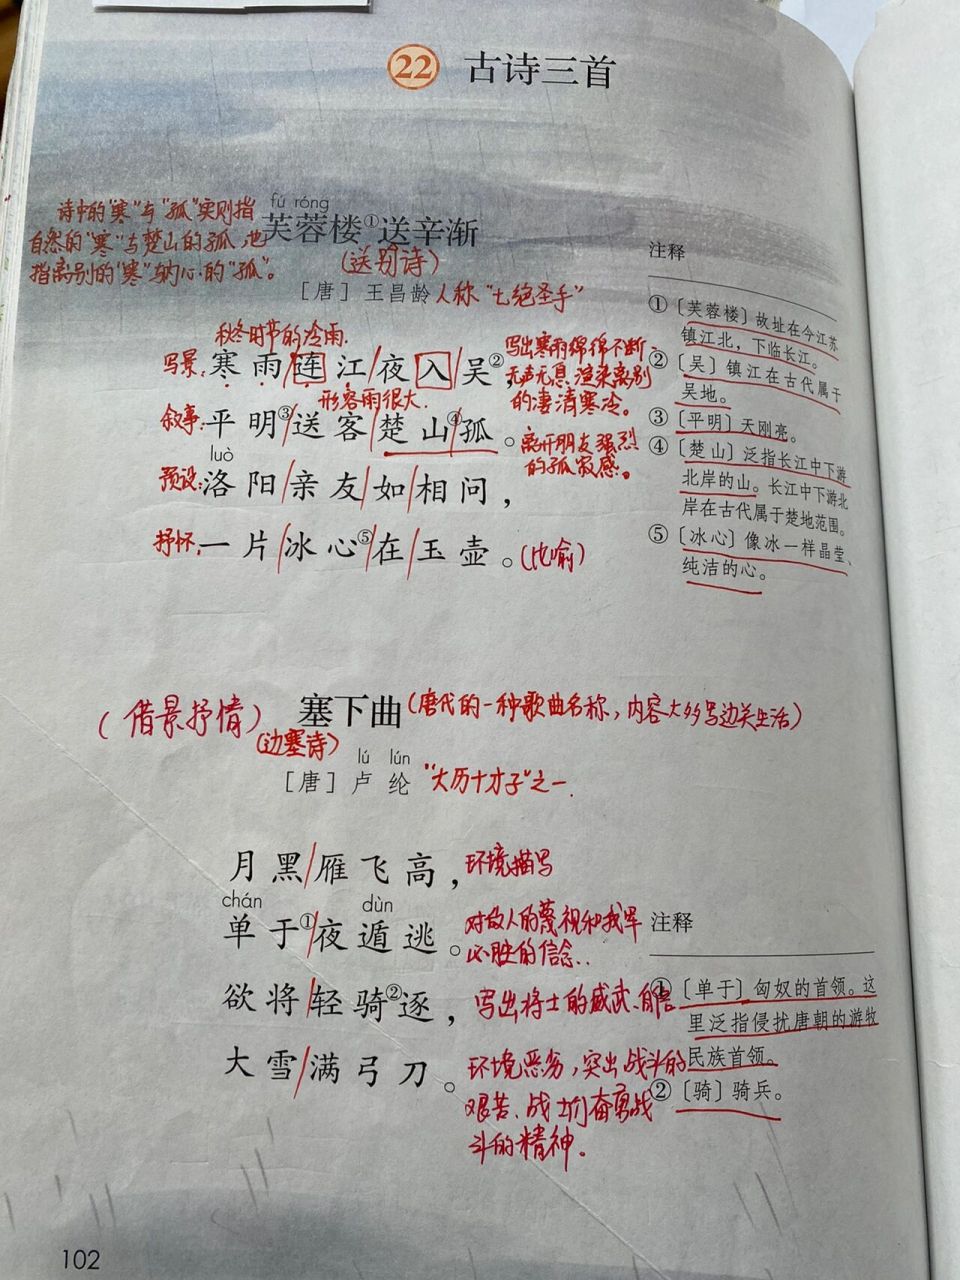 22 古诗三首
fú róng
芙蓉楼①送辛渐
诗中的"寒"与"孤"实则指
自然的"寒"与楚山的孤,也
指离别的"寒"与内心的"孤"。
(送别诗)
[唐] 王昌龄 人称"七绝圣手"
秋冬时节的冷雨.
写景:寒雨/连江/夜入/吴②,
形容雨很大.
写出寒雨绵绵不断,
无声无息,渲染离别
的凄清寒冷。
叙事:平明③/送客/楚山④/孤。
离开朋友强烈
的孤寂感。
luò
预设:洛阳/亲友/如/相问,
抒怀:一片/冰心⑤/在/玉壶。(比喻)
注释
①〔芙蓉楼〕故址在今江苏
镇江北,下临长江。
②〔吴〕镇江在古代属于
吴地。
③〔平明〕天刚亮。
④〔楚山〕泛指长江中下游
北岸的山。长江中下游北
岸在古代属于楚地范围。
⑤〔冰心〕像冰一样晶莹、
纯洁的心。
(借景抒情) 塞下曲 (唐代的一种歌曲名称,内容大多写边关生活)
(边塞诗)
lú lún
[唐] 卢纶 "大历十才子"之一.
月黑/雁飞高,环境描写
chán dùn
单于①/夜遁逃。
对敌人的蔑视和我军
必胜的信念..
欲将/轻骑②逐,写出将士的威武、自信
大雪/满弓刀。
环境恶劣,突出战斗的
艰苦、战士们奋勇战
斗的精神.
注释
①〔单于〕匈奴的首领。这
里泛指侵扰唐朝的游牧
民族首领。
②〔骑〕骑兵。
102